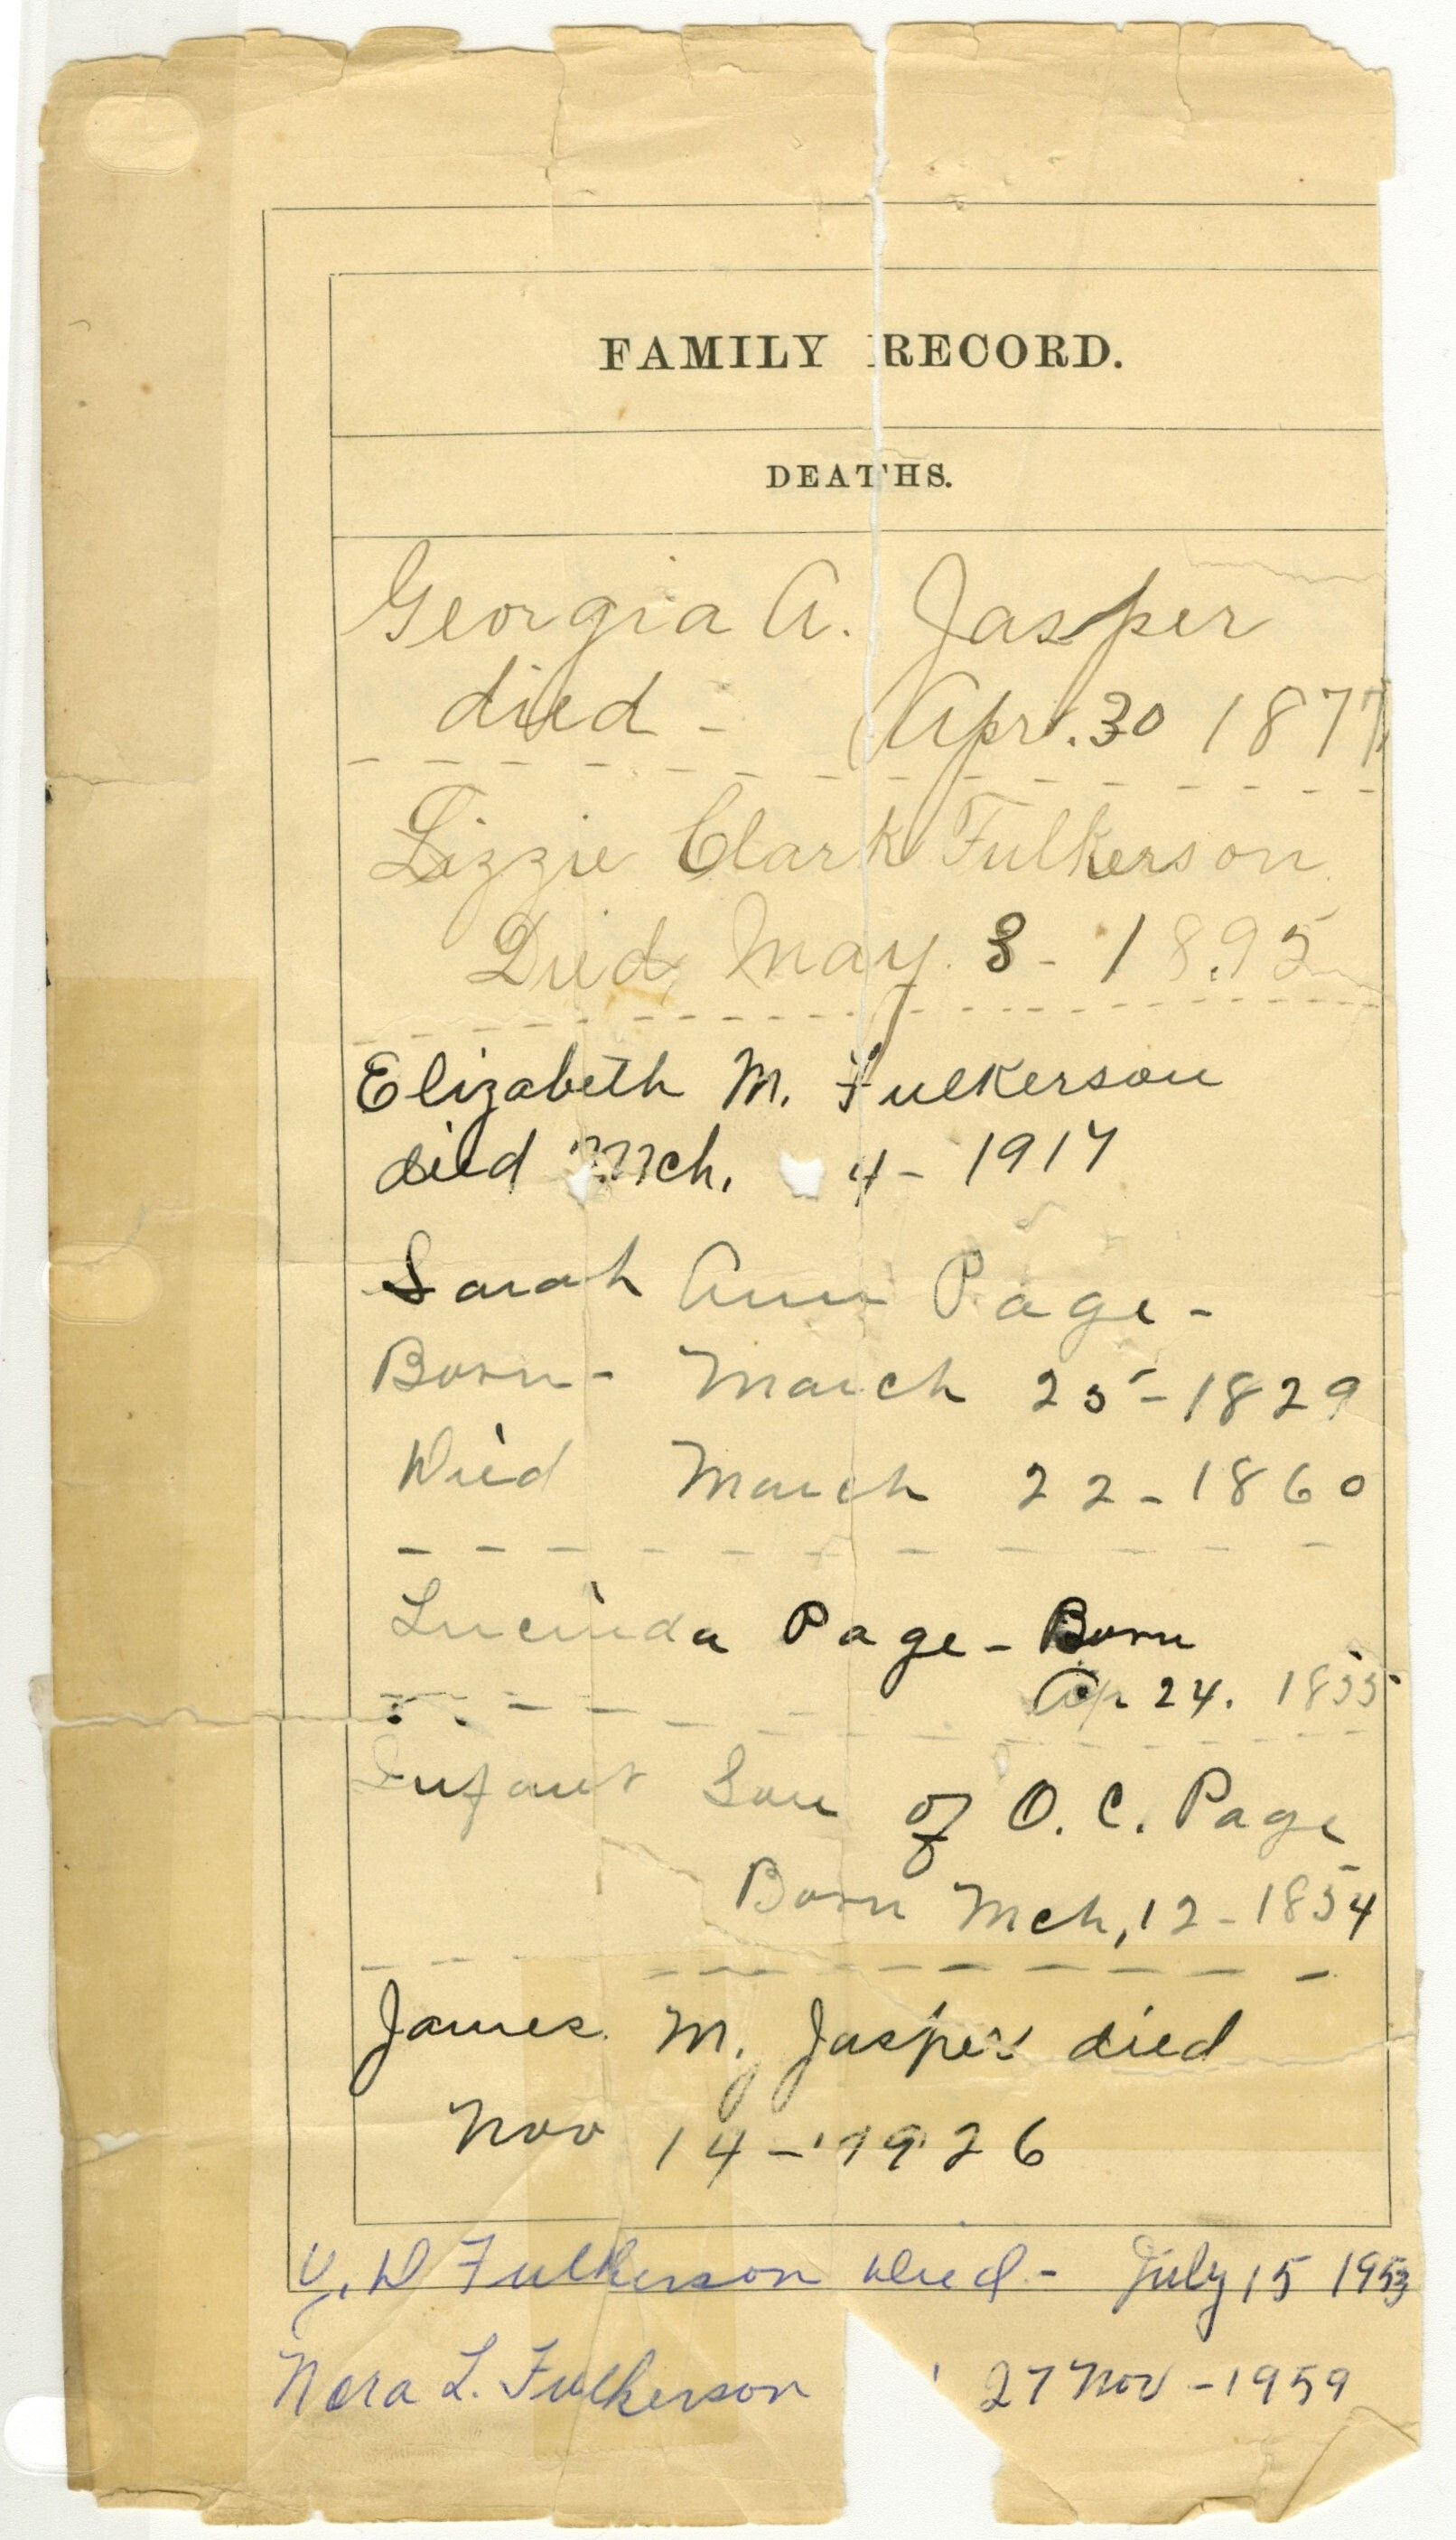 FAMILY RECORD.
DEATHS.
Georgia A. Jasper
died - Apr. 30 1877
Lizzie Clark Fulkerson
Died, May. 8 - 1895
Elizabeth M. Fulkerson
died Mch. 4 - 1917
Sarah Ann Page -
Born - March 25 - 1829
Died March 22 - 1860
Lucinda Page - Born
Ap 24. 1855
Infant Son of O. C. Page
Born Mch, 12 - 1854
James M. Jasper died
Nov 14 - 1926
D Fulkerson Died - July 15 1953
Nora L. Fulkerson 27 Nov - 1959